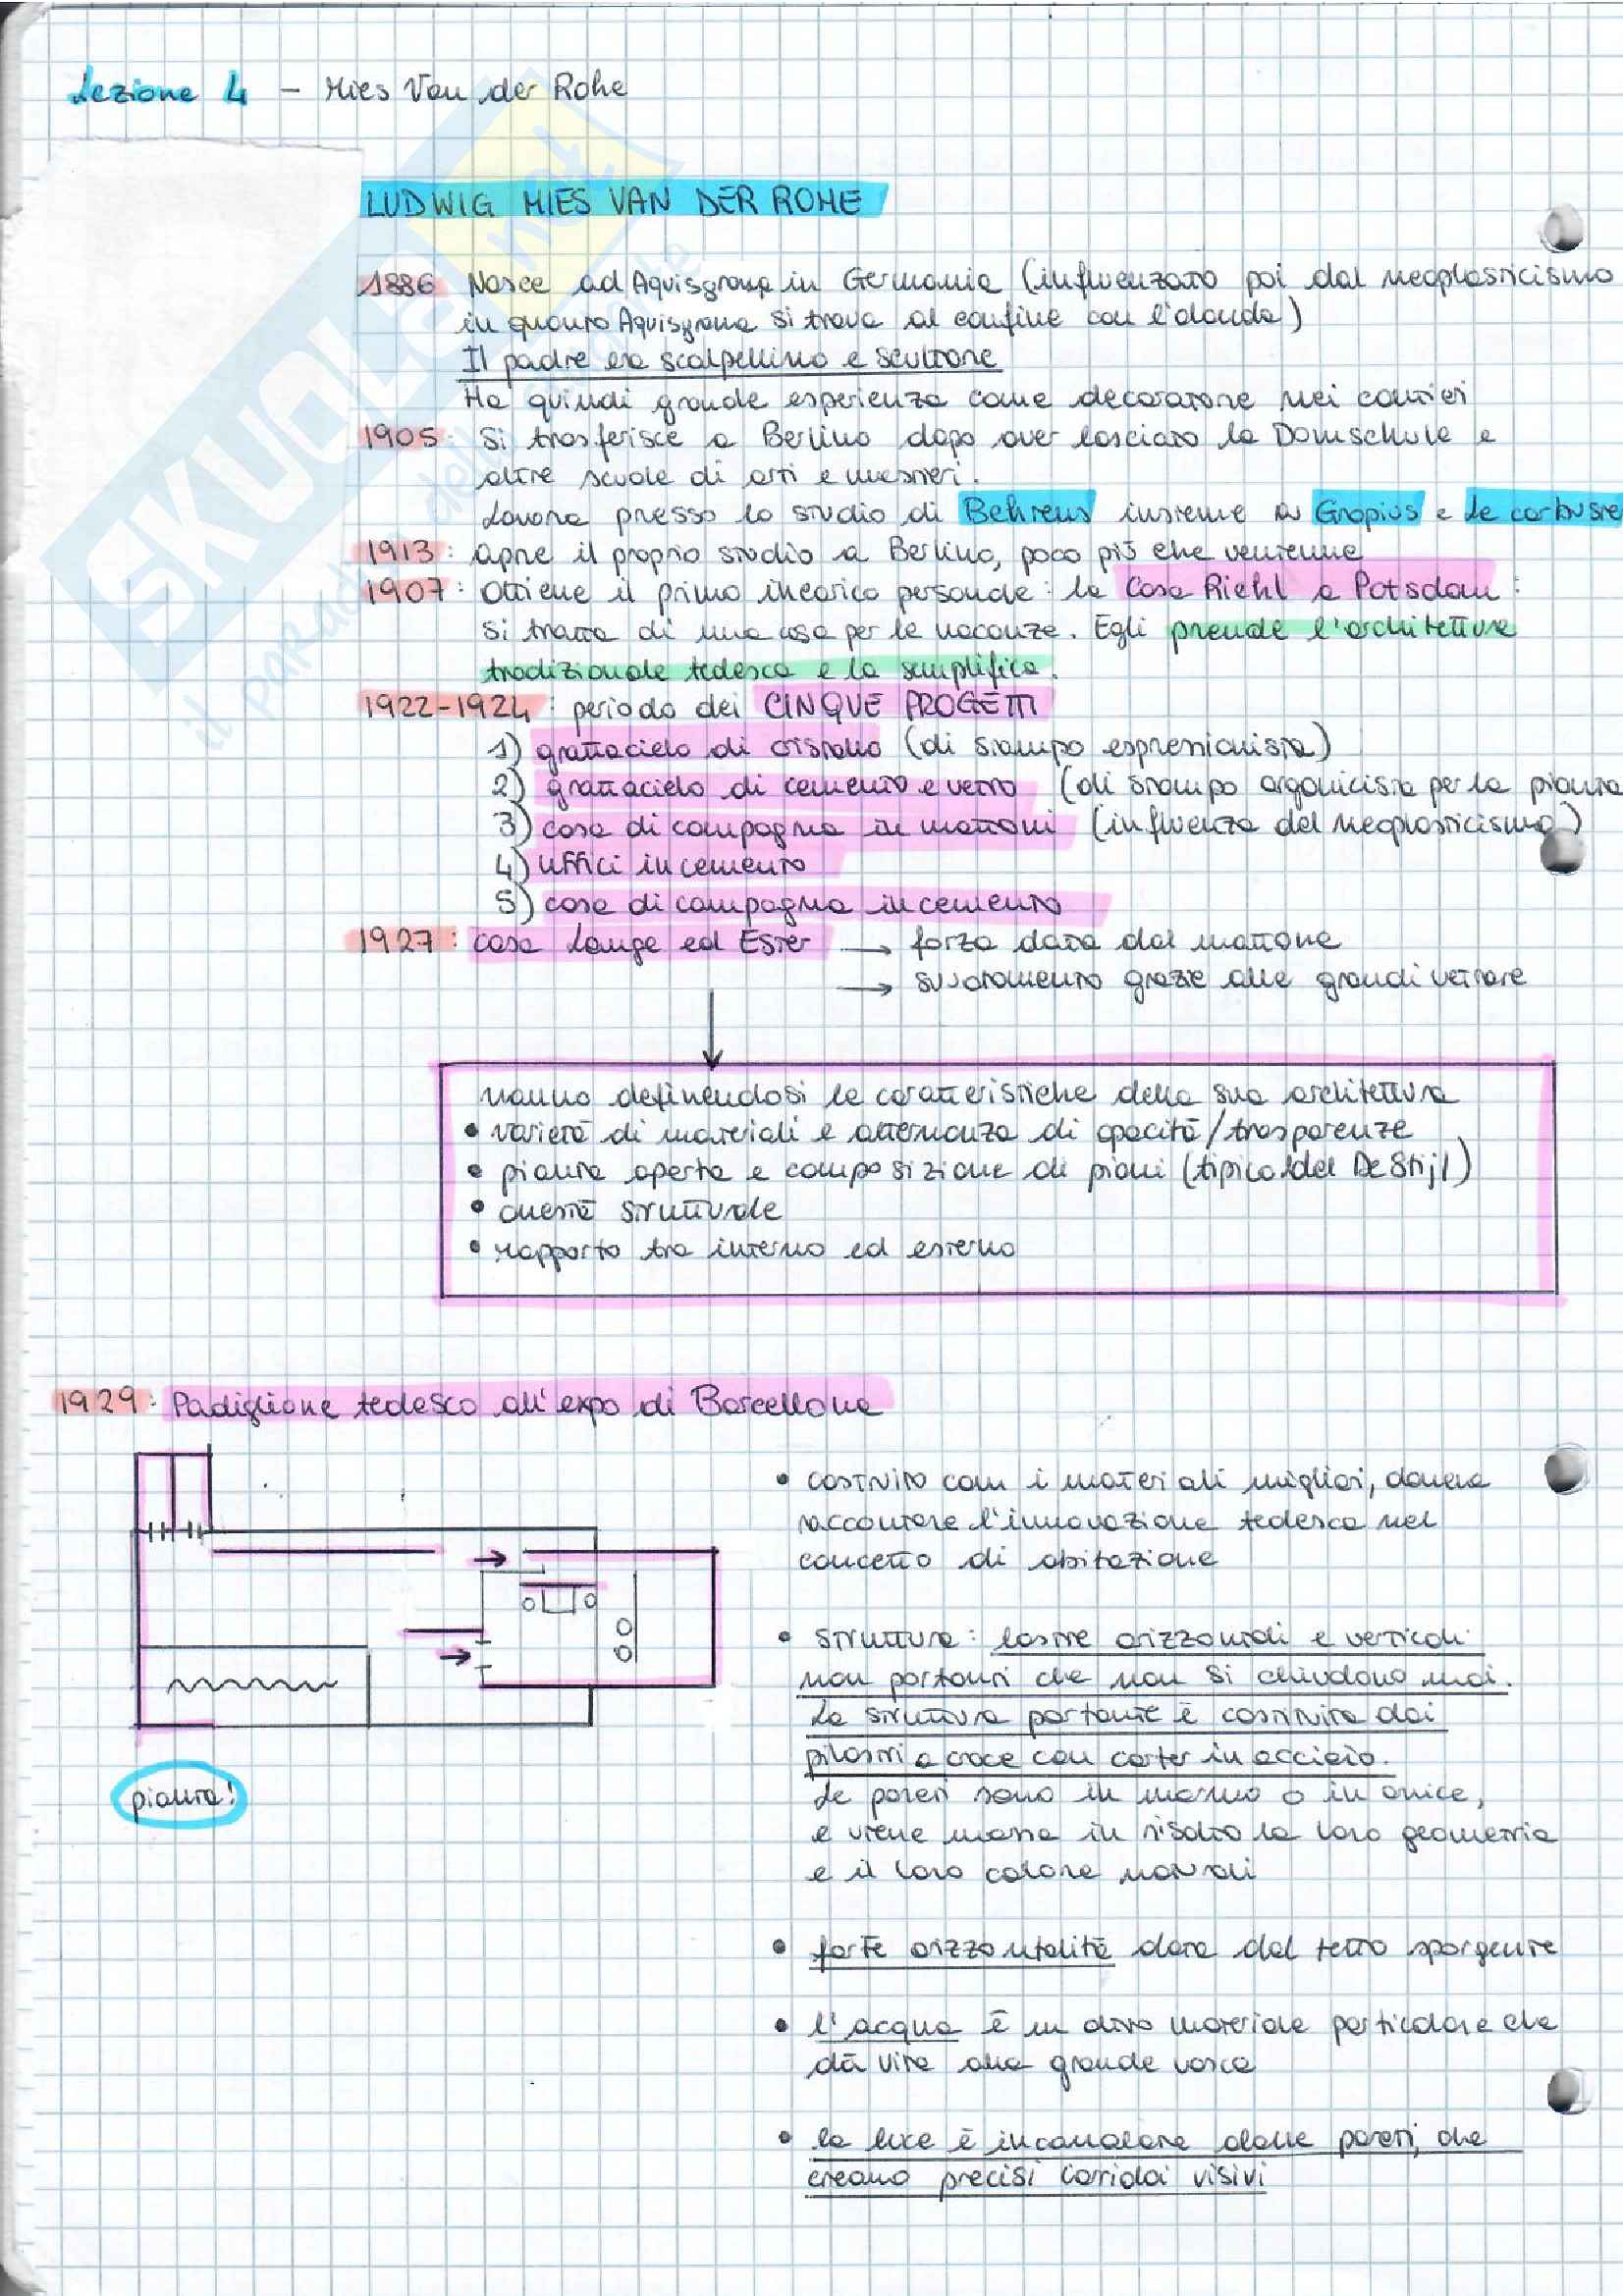 Lezione 4 - Mies Van der Rohe
LUDWIG MIES VAN DER ROHE
1886 Nasce ad Aquisgrana in Germania (influenzato poi dal neoplasticismo
in quanto Aquisgrana si trova al confine con l'olanda)
Il padre era scalpellino e scultore
Ha quindi grande esperienza come decoratore nei cantieri
1905: si trasferisce a Berlino dopo aver lasciato la Domschule e
altre scuole di arti e mestieri.
Lavora presso lo studio di Behrens insieme a Gropius e Le corbusie
1913: apre il proprio studio a Berlino, poco più che ventenne
1907: Ottiene il primo incarico personale: la Casa Riehl a Potsdam:
si tratta di una casa per le vacanze. Egli prende l'architettura
tradizionale tedesca e la semplifica.
1922-1924: periodo dei CINQUE PROGETTI
1) grattacielo di cristallo (di stampo espressionista)
2) grattacielo di cemento e vetro (di stampo organicista per la pianta
3) casa di campagna in mattoni (influenza del neoplasticismo)
4) uffici in cemento
5) casa di campagna in cemento
1927: casa Lange ed Ester → forza data dal mattone
→ svuotamento grazie alle grandi vetrate
vanno definendosi le caratteristiche della sua architettura
• varietà di materiali e alternanza di opacità/trasparenze
• pianta aperta e composizione di piani (tipico del De Stijl)
• onestà strutturale
• rapporto tra interno ed esterno
1929: Padiglione tedesco all'expo di Barcellona
• costruito con i materiali migliori, doveva
raccontare l'innovazione tedesca nel
concetto di abitazione
• struttura: lastre orizzontali e verticali
non portanti che non si chiudono mai.
La struttura portante è costituita dai
pilastri a croce con carter in acciaio.
Le pareti sono in marmo o in onice,
e viene messa in risalto la loro geometria
e il loro colore naturali
pianta!
• forte orizzontalità data dal tetto sporgente
• l'acqua è un altro materiale particolare che
dà vita alla grande vasca
• la luce è incanalata dalle pareti, che
creano precisi corridoi visivi
SKUOLA.net